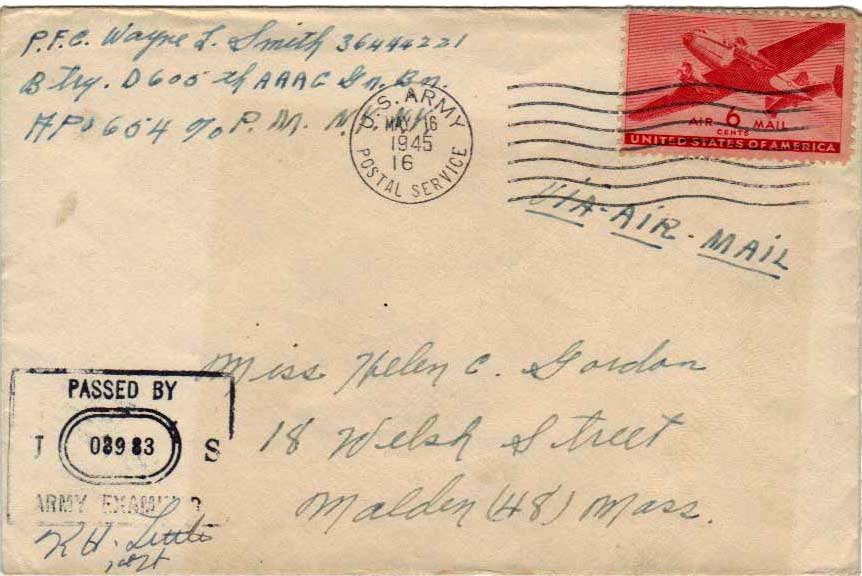 P.F.C. Wayne L. Smith 36444221
Btry. D 605th AAAG Gn. Bn.
APO 654 c/o P. M. N.Y.
U.S. ARMY
MAY 16
1945
16
POSTAL SERVICE
AIR 6 MAIL
CENTS
UNITED STATES OF AMERICA
VIA-AIR-MAIL
Miss Helen C. Gordon
18 Welsh Street
Malden (48) Mass.
PASSED BY
08983 S
ARMY EXAMINER